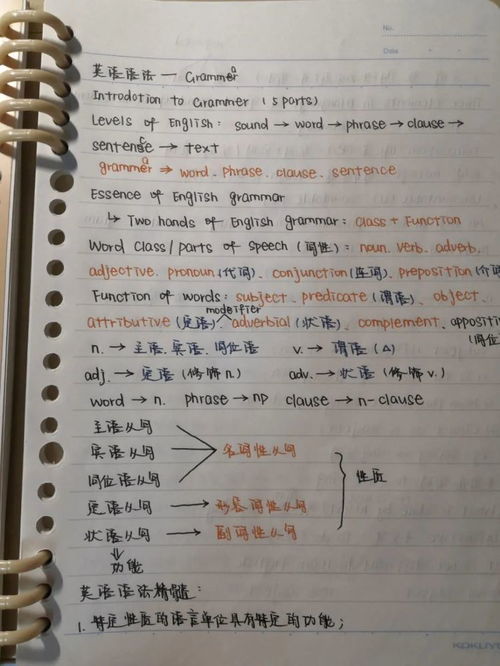 No.
Date
英语语法 — Grammer a
Introdction to Grammer (5 parts)
Levels of English: sound → word → phrase → clause →
sentense c → text
grammer a → word. phrase. clause. sentence
Essence of English grammar
↳ Two hands of English grammar: class + Function
Word class/parts of speech (词性): noun. verb. adverb.
adjective. pronoun (代词). conjunction (连词). preposition (介词
Function of words: subject. predicate (谓语). object.
modeifier
attributive (定语). adverbial (状语). complement. appositi
(同位
n. → 主语. 宾语. 同位语 v. → 谓语 (△)
adj. → 定语 (修饰 n.) adv. → 状语 (修饰 v.)
word → n. phrase → np clause → n-clause
主语从句
宾语从句 名词性从句
同位语从句 性质
定语从句 → 形容词性从句
状语从句 → 副词性从句
⇓
功能
英语语法精髓:
1. 特定性质的语言单位具有特定的功能;
KOKUYO